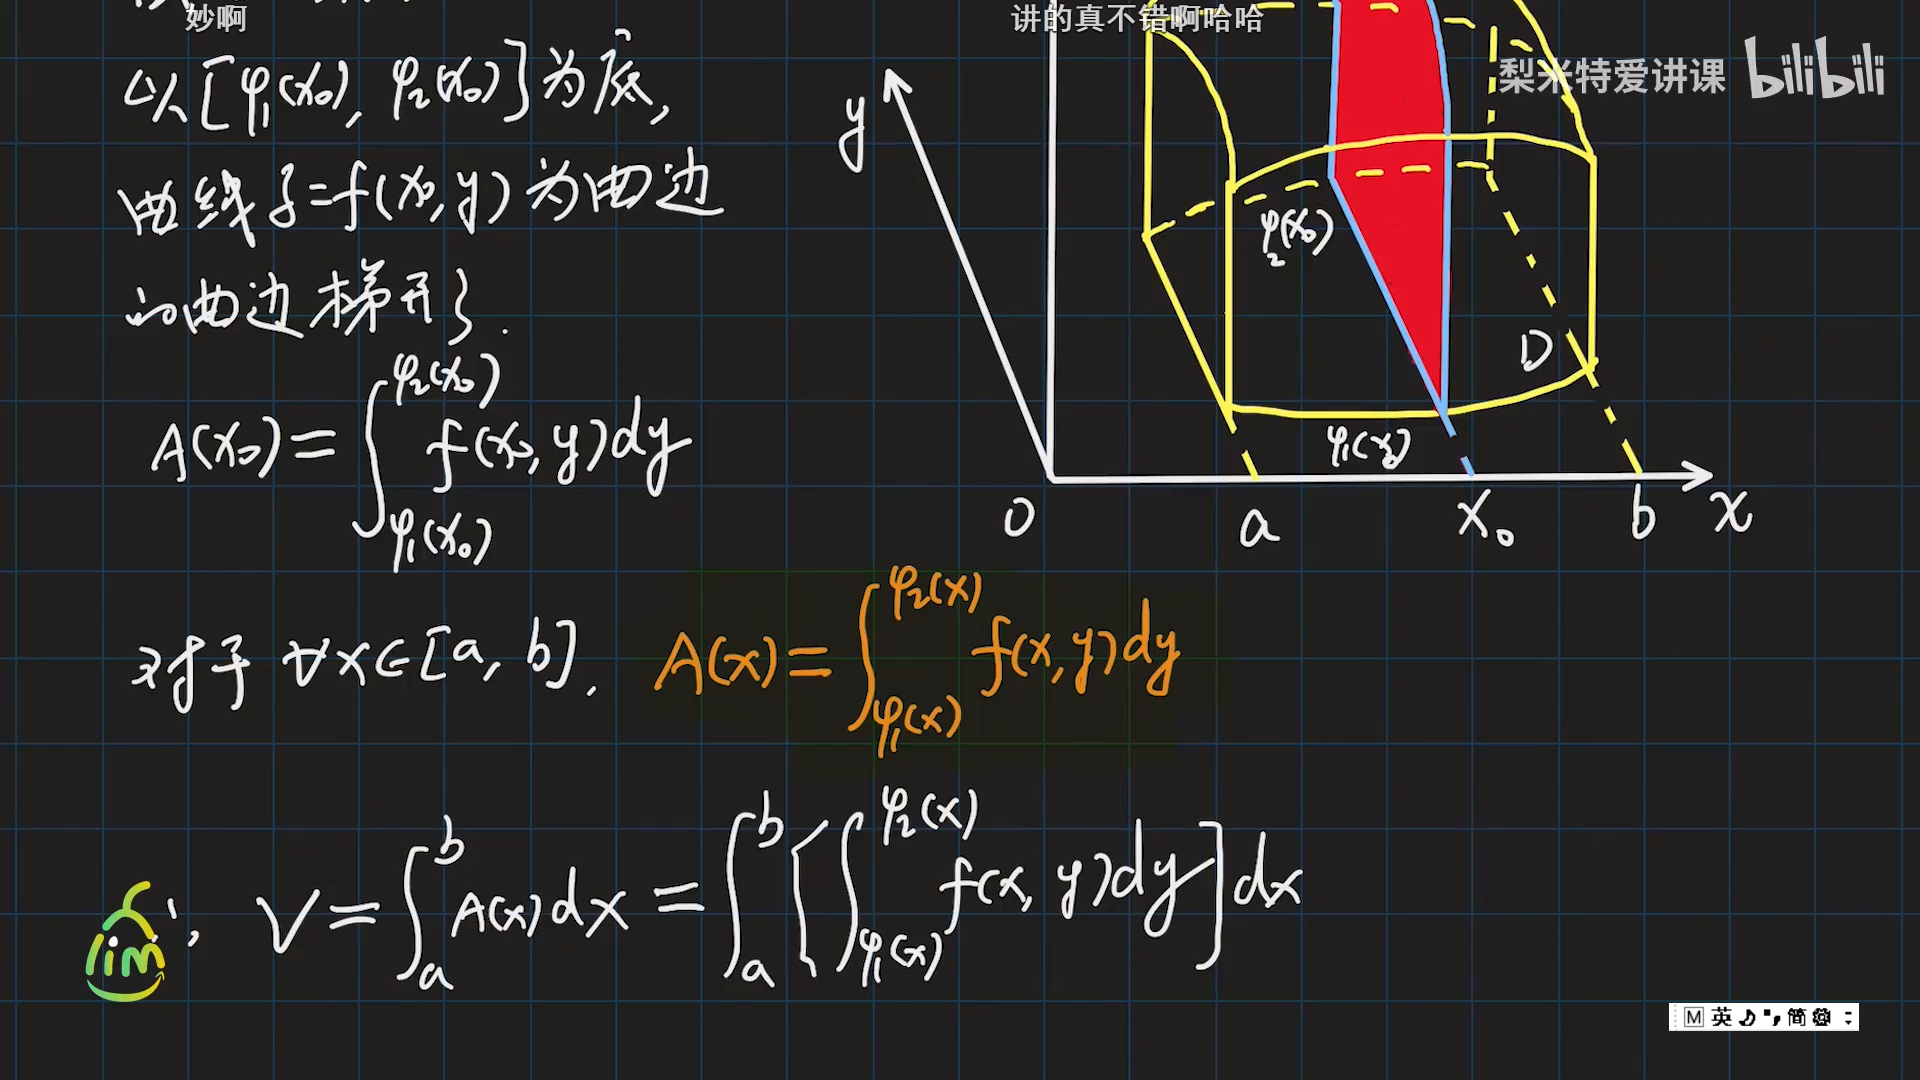 妙啊
讲的真不错啊哈哈
梨米特爱讲课 bilibili
以[φ₁(x₀), φ₂(x₀)]为底,
曲线z=f(x₀,y)为曲边
的曲边梯形.
A(x₀)=∫_{φ₁(x₀)}^{φ₂(x₀)} f(x₀,y)dy
y
φ₂(x₀)
D
φ₁(x₀)
O a x₀ b x
对于 ∀x∈[a, b], A(x)=∫_{φ₁(x)}^{φ₂(x)} f(x,y)dy
∴ V=∫_a^b A(x)dx=∫_a^b[∫_{φ₁(x)}^{φ₂(x)} f(x, y)dy]dx
lim
M 英 简